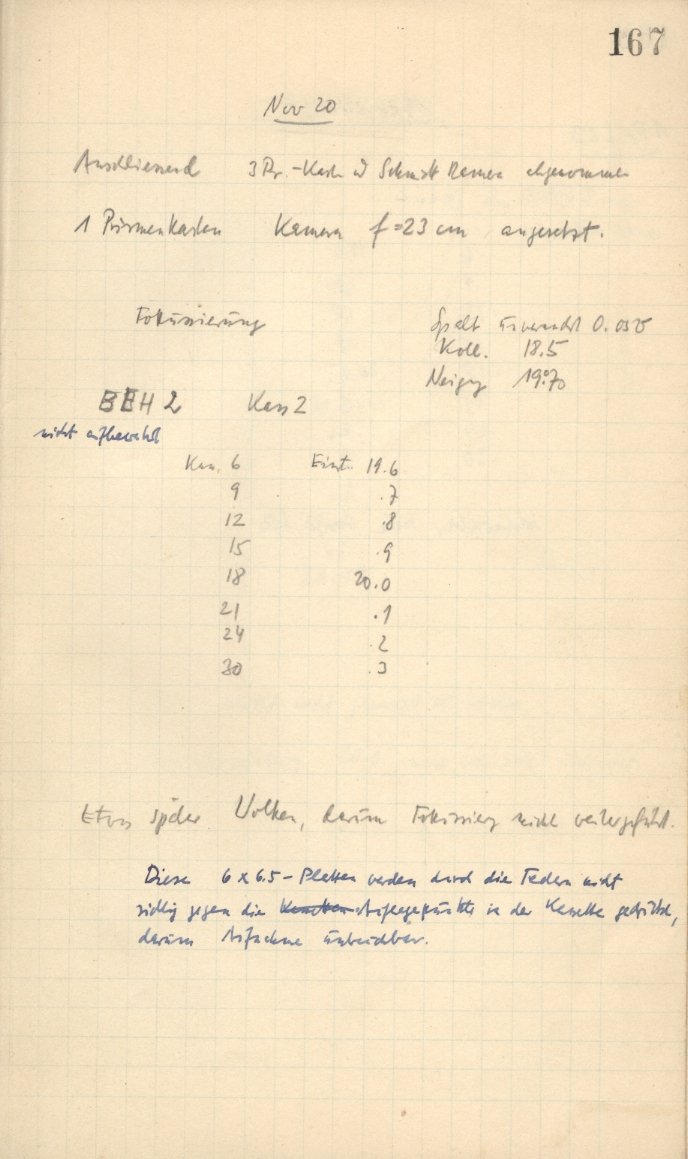 167
Nov 20
Anschliessend 3 Pr.-Kasten Schmidt Kamera abgenommen
1 Prismenkasten Kamera f = 23 cm angesetzt.
Fokussierung
Spalt unverändert 0.035
Koll. 18.5
Neigung 19.70
BEH 2 Kass 2
nicht aufbewahrt
Kam. 6 Einst. 19.6
9 .7
12 .8
15 .9
18 20.0
21 .1
24 .2
30 .3
Etwas später Wolken, darum Fokussierung nicht weitergeführt.
Diese 6 x 6.5 - Platten werden durch die Federn nicht
richtig gegen die Auflagepunkte in der Kassette gedrückt,
darum Aufnahme unbrauchbar.